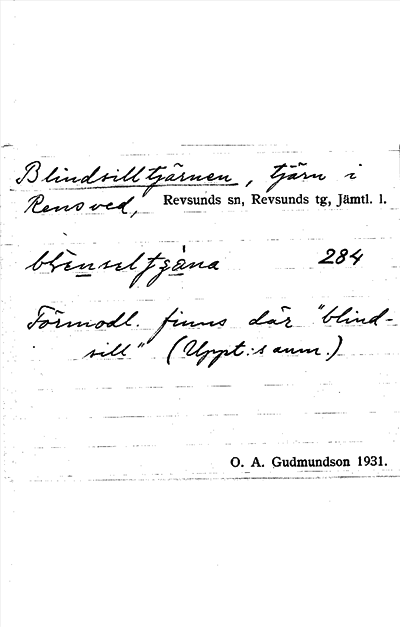 Blindsilltjärnen, tjärn i
Rensved, Revsunds sn, Revsunds tg, Jämtl. l.
284
Förmodl. finns där "blind-
sill" (Uppt:s anm.)
O. A. Gudmundson 1931.